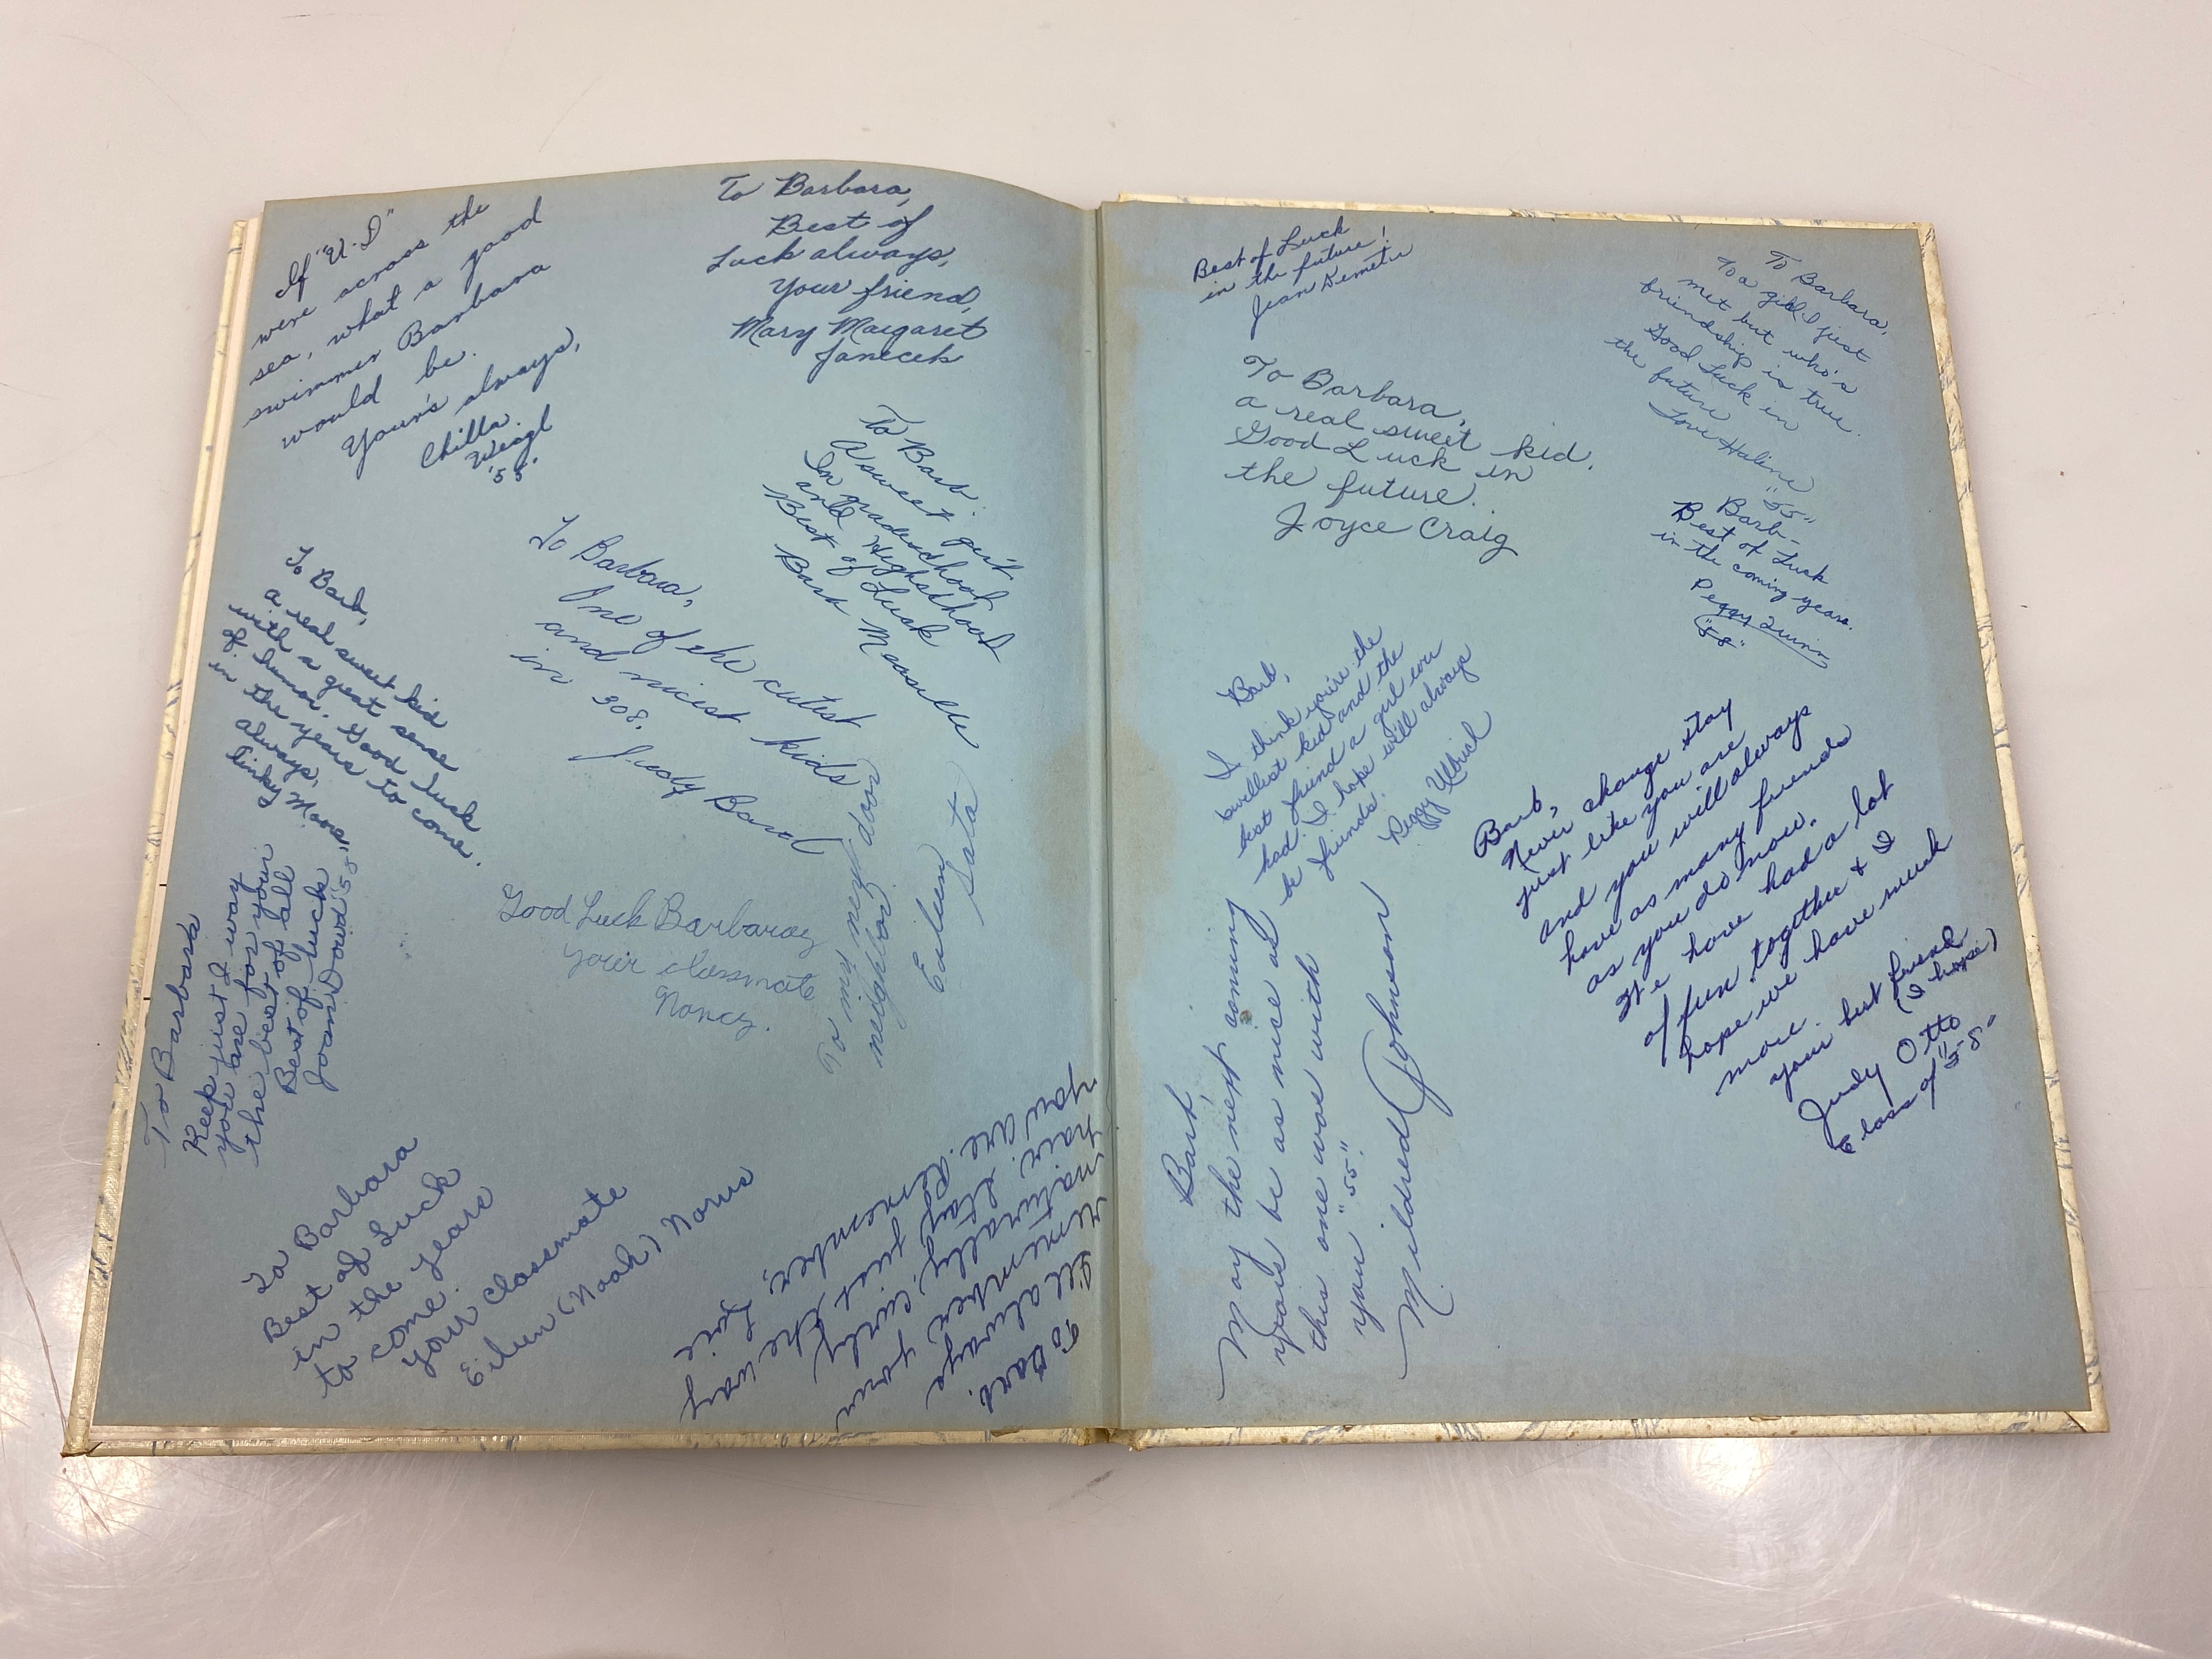 If "U.D"
were across the
sea, what a good
swimmer Barbara
would be.
Your's always,
Chilla
Weigl
'55'
To Barbara,
Best of
Luck always,
Your friend,
Mary Margaret
Janecek
To Barb,
A sweet girl
In gradeschool
and Highschool
Best of Luck
Barb
To Barbara,
One of the cutest
and nicest kids
in 308.
Judy Band
To Barb,
a real sweet kid
with a great sense
of humor. Good luck
in the years to come.
Always,
To Barbara
Keep just I way
you are for your
the best of all
Best of luck
Joan Dowd "55"
Good Luck Barbaray
your classmate
Nancy.
To my next door
neighbor
Eileen
Sata
To Barbara
Best of Luck
in the Years
to come.
Your Classmate
Eileen (Nook) Norris
To Barb,
I'll always
remember your
naturally curly
hair. Stay just the way
you are. Remember, Love
Best of Luck
in the future!
Jean
To Barbara,
To a girl I just
met but who's
friendship is true.
Good Luck in
the future
Love Halina
"55"
To Barbara,
a real sweet kid.
Good Luck in
the future.
Joyce Craig
Barb-
Best of Luck
in the coming years.
Peggy Quinn
"58"
Barb,
I think you're the
swellest kid and the
best friend a girl ever
had. I hope we'll always
be friends.
Peggy Ulbrich
Barb,
Never change stay
just like you are
and you will always
have as many friends
as you do now.
We have had a lot
of fun together & I
hope we have much
more.
your best friend
(I hope)
Judy Otto
Class of "58"
Barb,
May the next comming
years be as nice as
this one was with
you "55".
Mildred Johnson